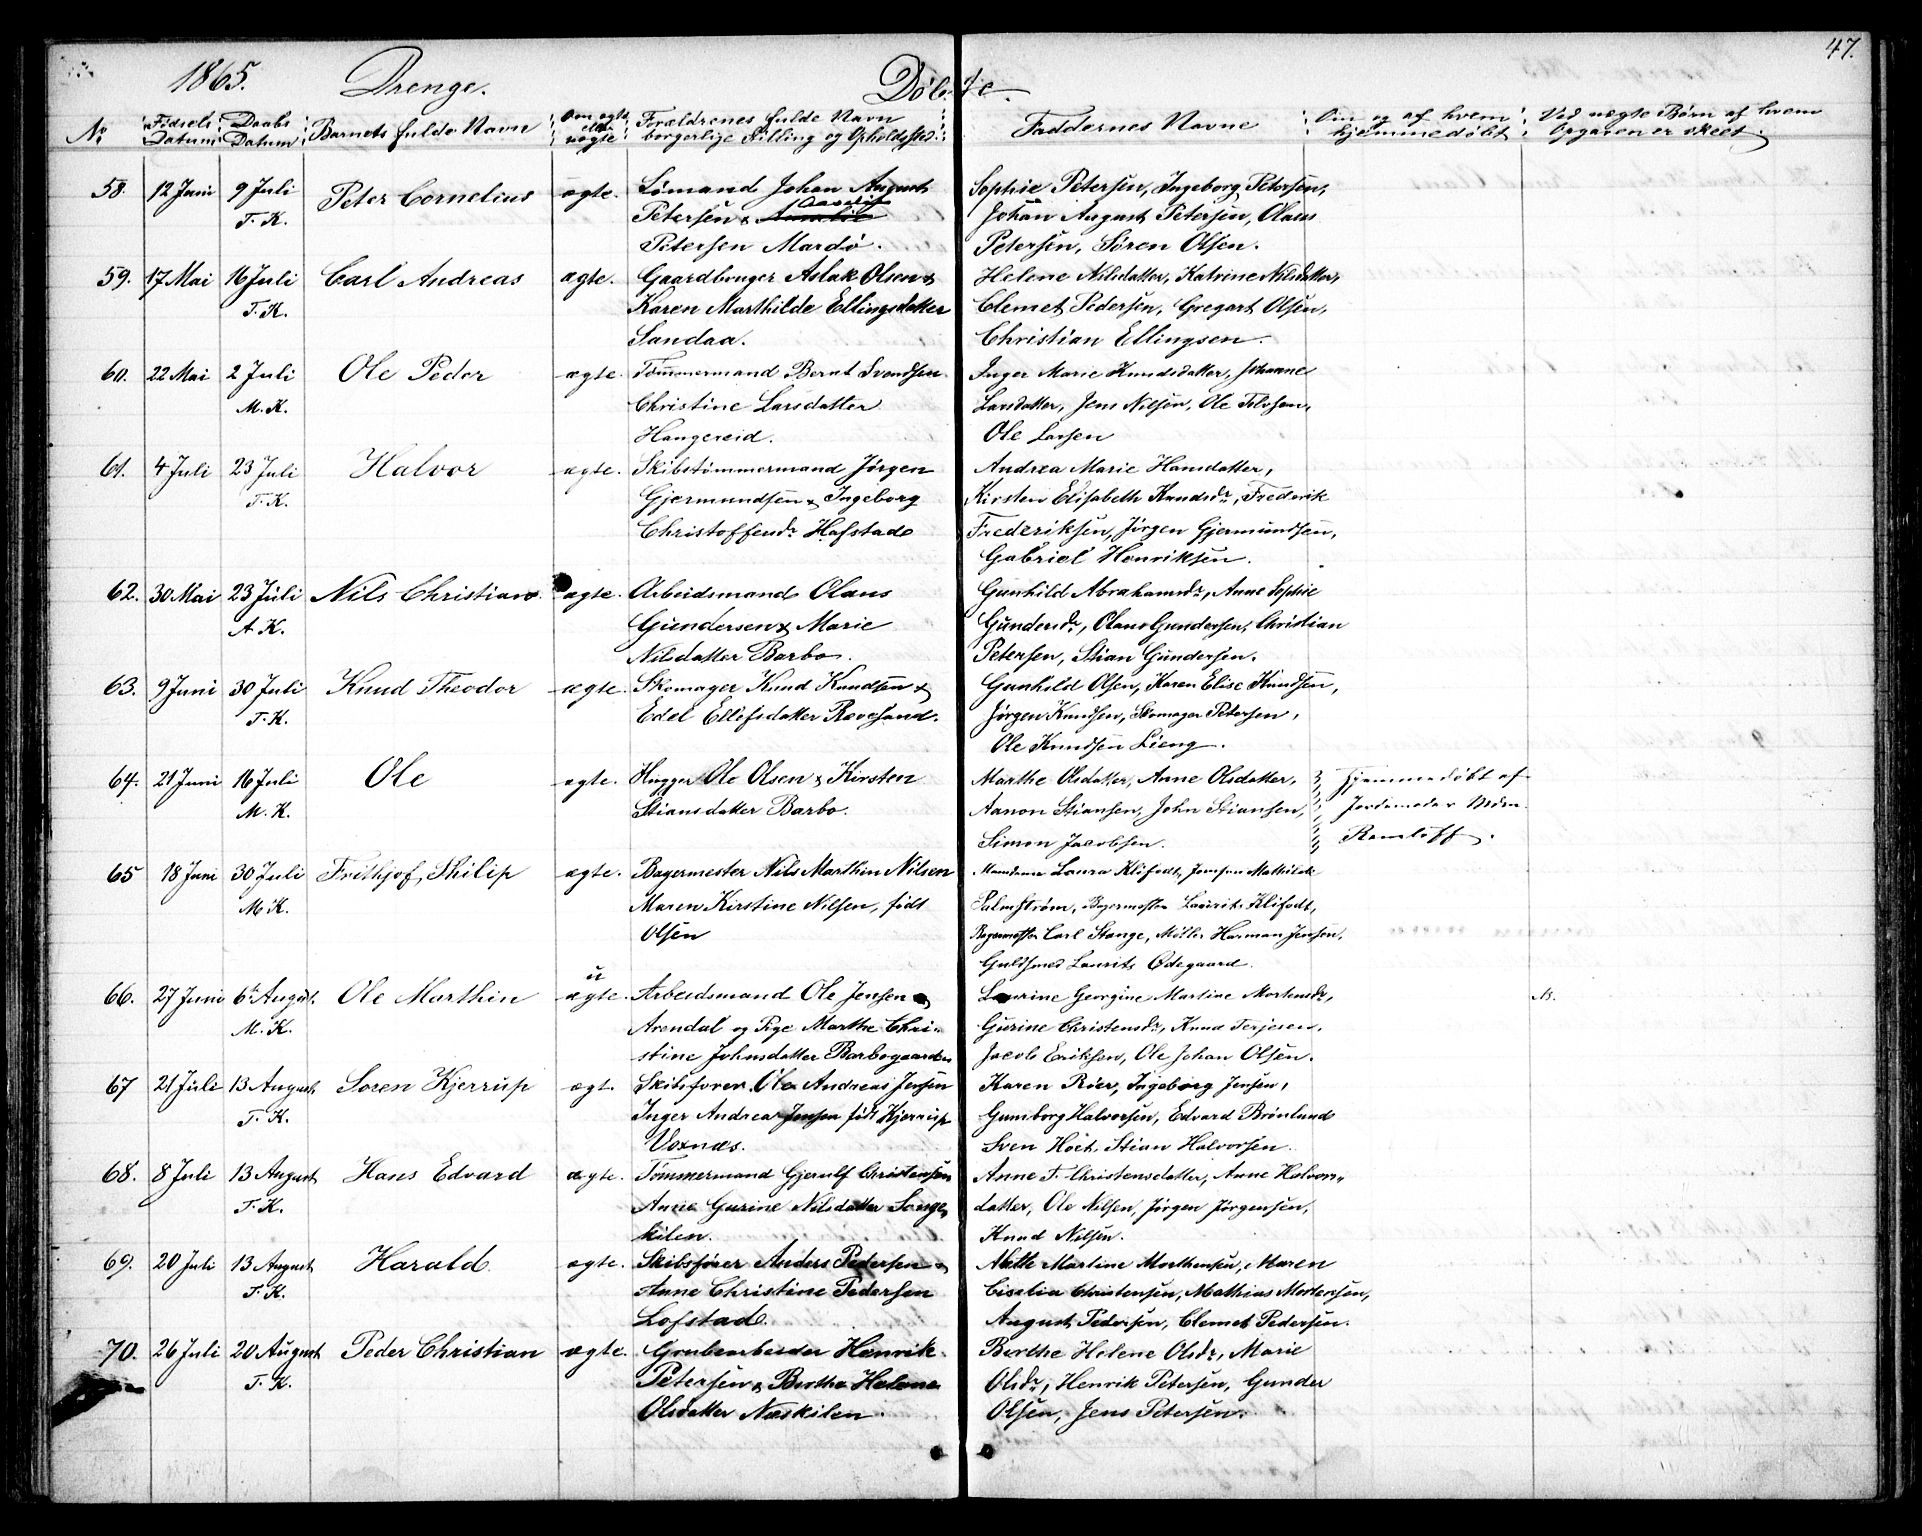 47.
1865. Drenge. Døbte.
No Fødsels Datum Daabs Datum Barnets fulde Navn Om ægte eller uægte Forældrenes fulde Navn borgerlige Stilling og Opholdsted. Faddernes Navne Om og af hvem hjemmedøbt Ved uægte Børn af hvem Opgaven er skeet.
58. 12 Juni 9 Juli Peter Cornelius ægte. Sømand Johan August Sophie Petersen, Ingeborg Petersen,
T. K. Petersen & Petersen Mardø. Johan August Petersen, Olaus
Petersen, Søren Olsen.
59. 17 Mai 16 Juli Carl Andreas ægte. Gaardbruger Aslak Olsen & Helene Nilsdatter, Katrine Nilsdatter,
T. K. Karen Marthilde Ellingsdatter Clemet Pedersen, Gregart Olsen,
Sandaa. Christian Ellingsen.
60. 22 Mai 2 Juli Ole Peder ægte. Tømmermand Bernt Svendsen Inger Marie Knudsdatter, Johanne
M. K. Christine Larsdatter Larsdatter, Jens Nilsen, Ole Tolvsen,
Hangereid. Ole Larsen
61. 4 Juli 23 Juli Halvor ægte. Skibstømmermand Jørgen Andrea Marie Hansdatter,
T. K. Gjermundsen & Ingeborg Kirsten Elisabeth Knudsdr, Frederik
Christoffersdr Hafstad Frederiksen, Jørgen Gjermundsen,
Gabriel Henriksen.
62. 30 Mai 23 Juli Nils Christian ægte. Arbeidsmand Olaus Gunhild Abrahamsdr, Anne Sophie
A. K. Gundersen & Marie Gundersdr, Olaus Gundersen, Christian
Nilsdatter Barbo. Petersen, Stian Gundersen.
63. 9 Juni 30 Juli Knud Theodor ægte. Skomager Knud Knudsen & Gunhild Olsen, Karen Elise Knudsen,
T. K. Edel Ellefsdatter Revesand. Jørgen Knudsen, Skomager Petersen,
Ole Knudsen Lieng.
64. 21 Juni 16 Juli Ole ægte. Hugger Ole Olsen & Kirsten Marthe Olsdatter, Anne Olsdatter, Hjemmedøbt af
M. K. Stiansdatter Barbo. Aanon Stiansen, John Stiansen, Jordemoder Mdm.
Simon Jacobsen. Ramløff.
65 18 Juni 30 Juli Frithjof, Philip ægte. Bagermester Nils Marthin Nilsen Madame Laura Klifodt, Jomfru Mathilde
M. K. Maren Kirstine Nilsen, født Palmstrøm, Bagermester Laurits Klifodt,
Olsen Bagermester Carl Stange, Møller Harman Jensen,
Guldsmed Laurits Ødegaard.
66. 27 Juni 6te August. Ole Marthin uægte. Arbeidsmand Ole Jensen Laurine Georgine Martine Mortensdr, N.
M. K. Arendal og Pige Marthe Chri- Gurine Christensdr, Knud Terjesen,
stine Johnsdatter Barbogaarden Jacob Eriksen, Ole Johan Olsen.
67 21 Juli 13 August Søren Kjerrup ægt. Skibsfører Ole Andreas Jensen Karen Röer, Ingeborg Jensen,
T. K. Inger Andrea Jensen født Kjerrup Gumborg Halvorsen, Edvard Brønlund
Voxnæs. Sven Høeh, Stian Halvorsen.
68. 8 Juli 13 August Hans Edvard ægte. Tømmermand Gjerulf Christensen Anne F. Christensdatter, Anne Halvors-
T. K. Anne Gurine Nilsdatter Songe- datter, Ole Nilsen, Jørgen Jørgensen,
kilen. Knud Nilsen.
69. 20 Juli 13 August Harald ægte. Skibsfører Anders Pedersen & Mette Martine Morthensen, Maren
T. K. Anne Christine Pedersen Cicelia Christensen, Mathias Mortensen,
Lofstad. August Pedersen, Clemet Pedersen.
70. 26 Juli 20 August Peder Christian ægte. Grubearbeider Henrik Berthe Helene Olsdr, Marie
T. K. Petersen & Berthe Helene Olsdr, Henrik Petersen, Gunder
Olsdatter Næskilen. Olsen, Jens Petersen.